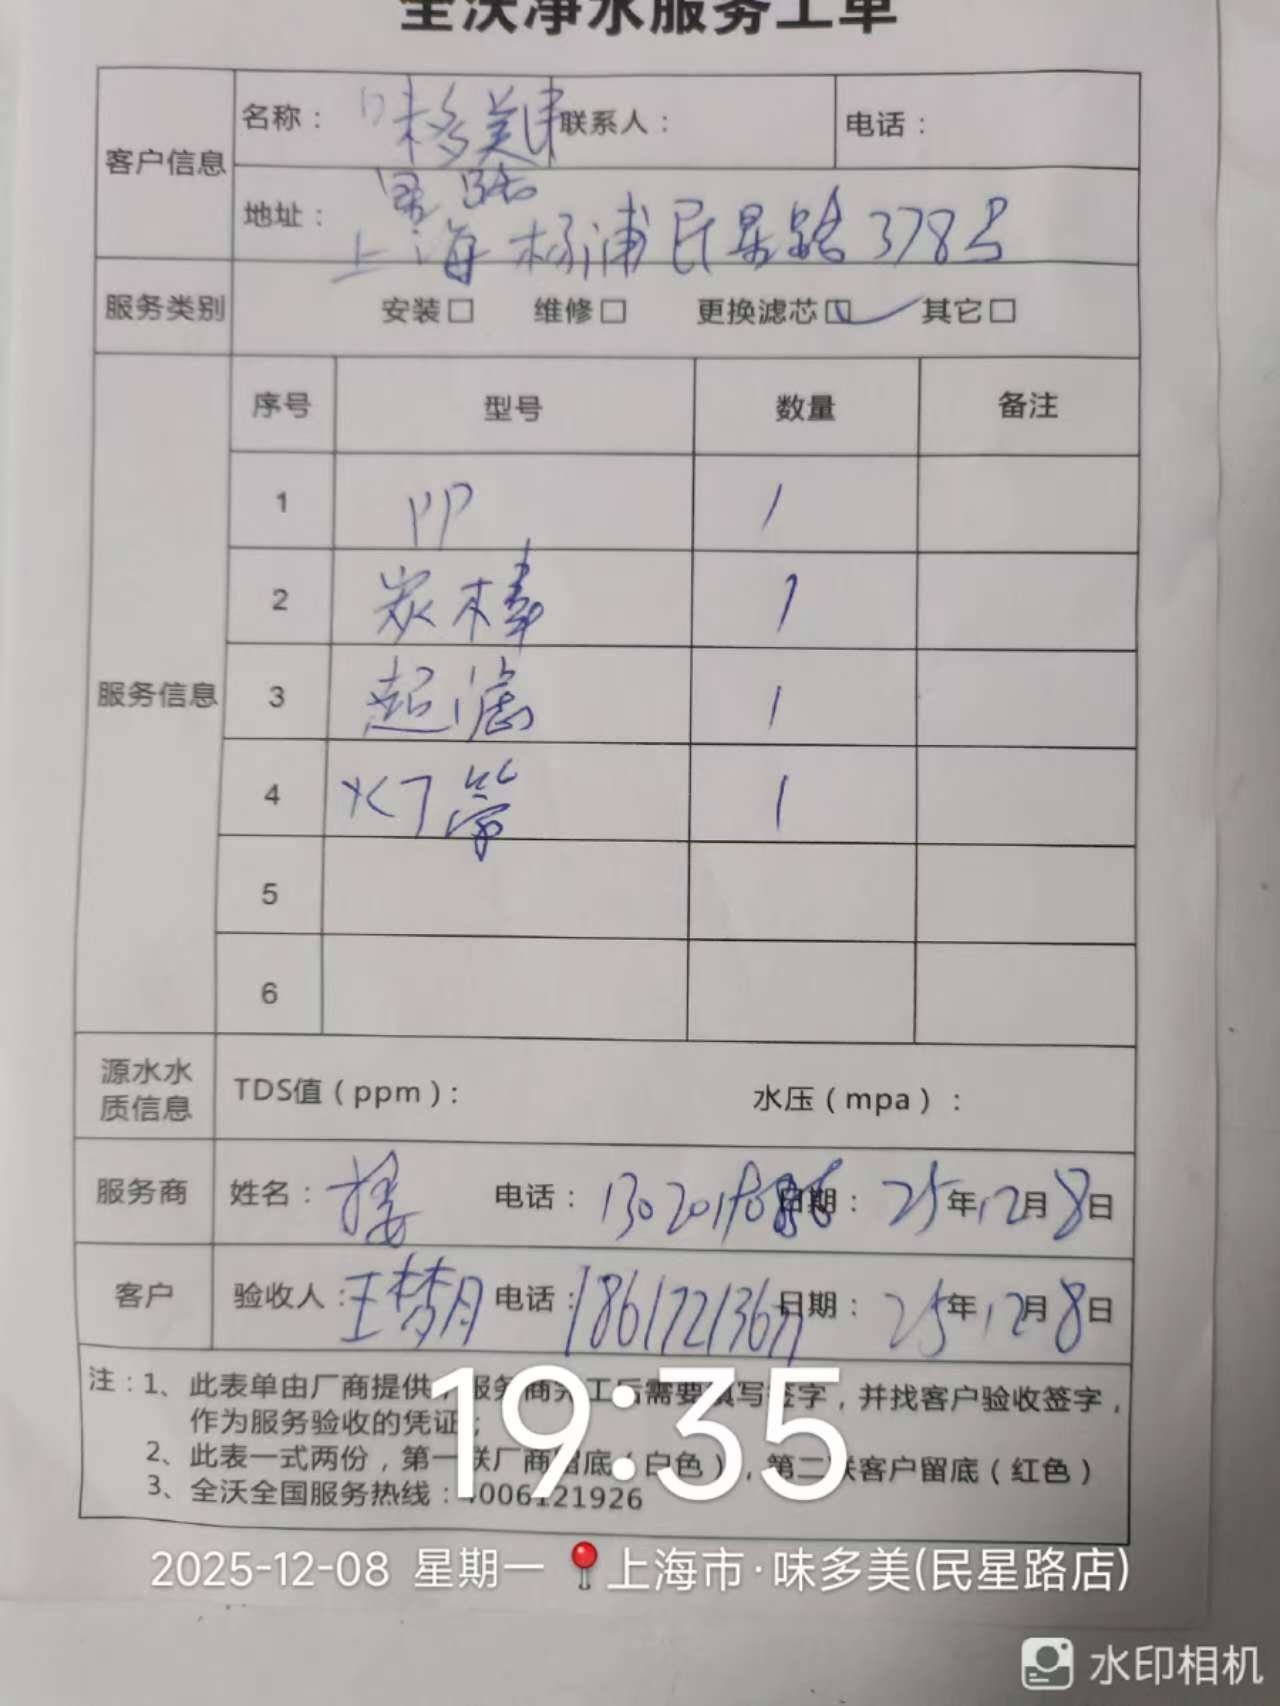 全沃净水服务工单
客户信息
名称： 味多美民星路 联系人： 电话：
地址： 上海杨浦民星路378号
服务类别 安装□ 维修□ 更换滤芯☑ 其它□
服务信息
序号 型号 数量 备注
1 PP 1
2 炭棒 1
3 超滤 1
4 灯管 1
5
6
源水水质信息 TDS值（ppm）： 水压（mpa）：
服务商 姓名： 电话： 日期： 25年12月8日
客户 验收人：王梦月 电话： 日期： 25年12月8日
注：1、此表单由厂商提供，服务商完工后需要填写签字，并找客户验收签字，
作为服务验收的凭证；
2、此表一式两份，第一联厂商留底（白色），第二联客户留底（红色）
3、全沃全国服务热线：4006121926
19:35
2025-12-08 星期一 上海市·味多美(民星路店)
水印相机